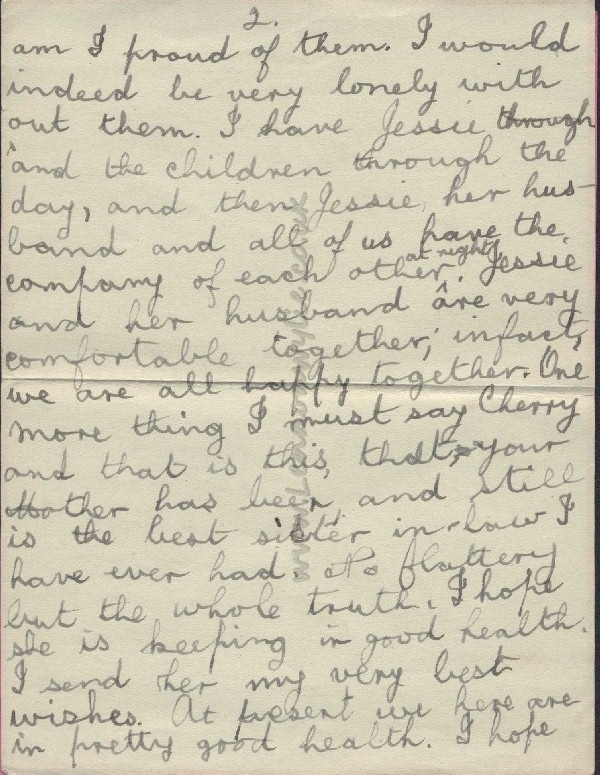 2.
am I proud of them. I would
indeed be very lonely with
out them. I have Jessie through
and the children through the
day, and then Jessie, her hus-
band and all of us have the
company of each other at night, Jessie
and her husband are very
comfortable together, infact,
we are all happy together. One
more thing I must say Cherry
and that is this, that, your
Mother has been and still
is the best sister in-law I
have ever had. No flattery
but the whole truth. I hope
she is keeping in good health.
I send her my very best
wishes. At present we here are
in pretty good health. I hope